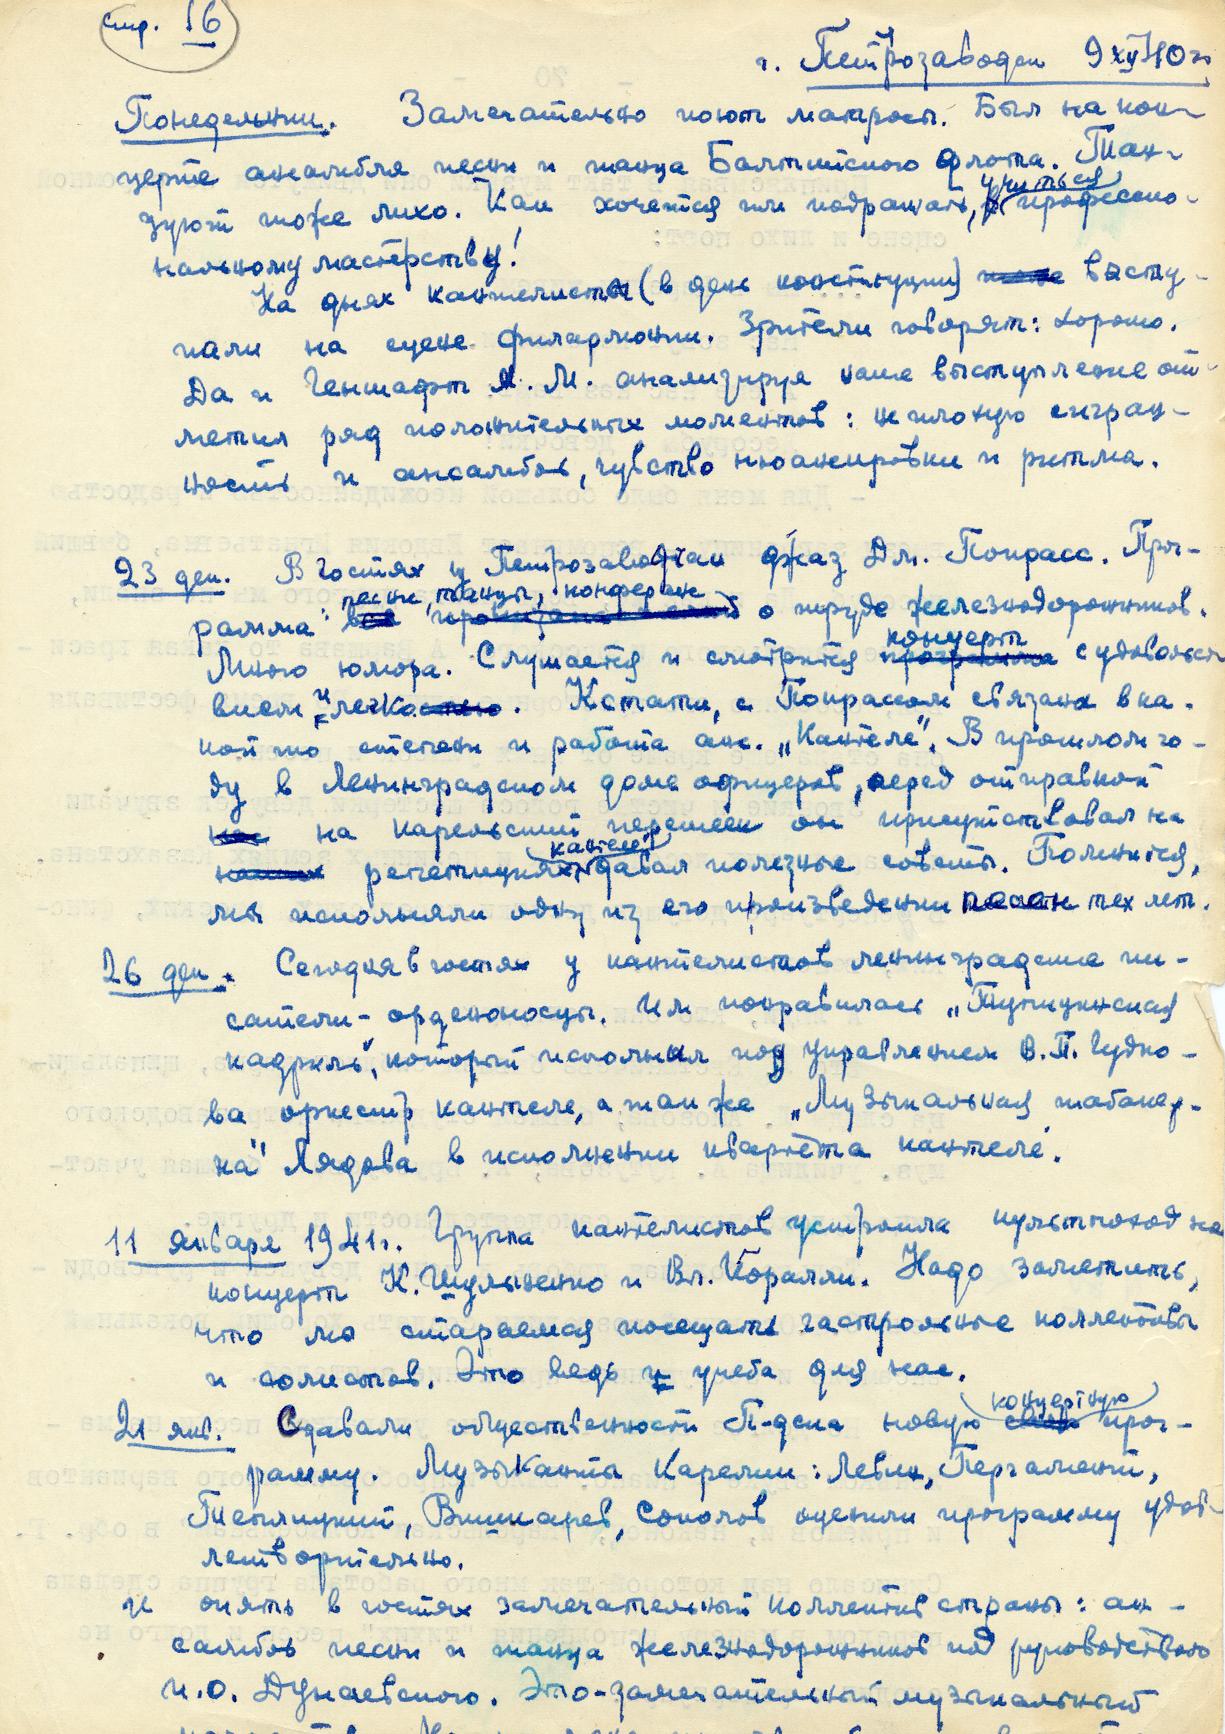 стр. 16
г. Петрозаводск 9 XII 40 г.
Понедельник. Замечательно поют матросы. Был на кон-
церте ансамбля песни и танца Балтийского флота. Тан-
цуют тоже лихо. Как хочется им подражать, учиться профессио-
нальному мастерству!
На днях кантелисты (в день конституции) высту-
пали на сцене филармонии. Зрители говорят: хорошо.
Да и Геншафт Я. М. анализируя наше выступление от-
метил ряд положительных моментов: неплохую сыгран-
ность и ансамбль, чувство нюансировки и ритма.
23 дек. В гостях у Петрозаводчан джаз Дм. Покрасс. Прог-
рамма: песни, танцы, конферанс о труде железнодорожников.
Много юмора. Слушается и смотрится концерт с удовольст
вием и легко. Кстати, с Покрассом связана в ка-
кой то степени и работа анс. „Кантеле". В прошлом го-
ду в Ленинградском доме офицеров, перед отправкой
на карельский перешеек он присутствовал на
репетициях „кантеле" давал полезные советы. Помнится,
мы исполняли одну из его произведений песен тех лет.
26 дек. Сегодня в гостях у кантелистов ленинградские пи-
сатели-орденоносцы. Им понравилась „Тунгудская
кадриль", который исполнял под управлением В.П. Гудко-
ва оркестр кантеле, а так же „Музыкальная табакер-
ка" Лядова в исполнении квартета кантеле.
11 января 1941 г. Группа кантелистов устроила культпоход на
концерт К. Шульженко и Вл. Коралли. Надо заметить,
что мы стараемся посещать гастрольные коллективы
и солистов. Это ведь и учеба для нас.
21 янв. Сдавали общественности П-дска новую концертную прог-
рамму. Музыканты Карелии: Левин, Пергамент,
Теплицкий, Вишкарев, Соколов оценили программу удов-
летворительно.
И опять в гостях замечательный коллектив страны: ан-
самбль песни и танца железнодорожников под руководством
И.О. Дунаевского. Это-замечательный музыкальный